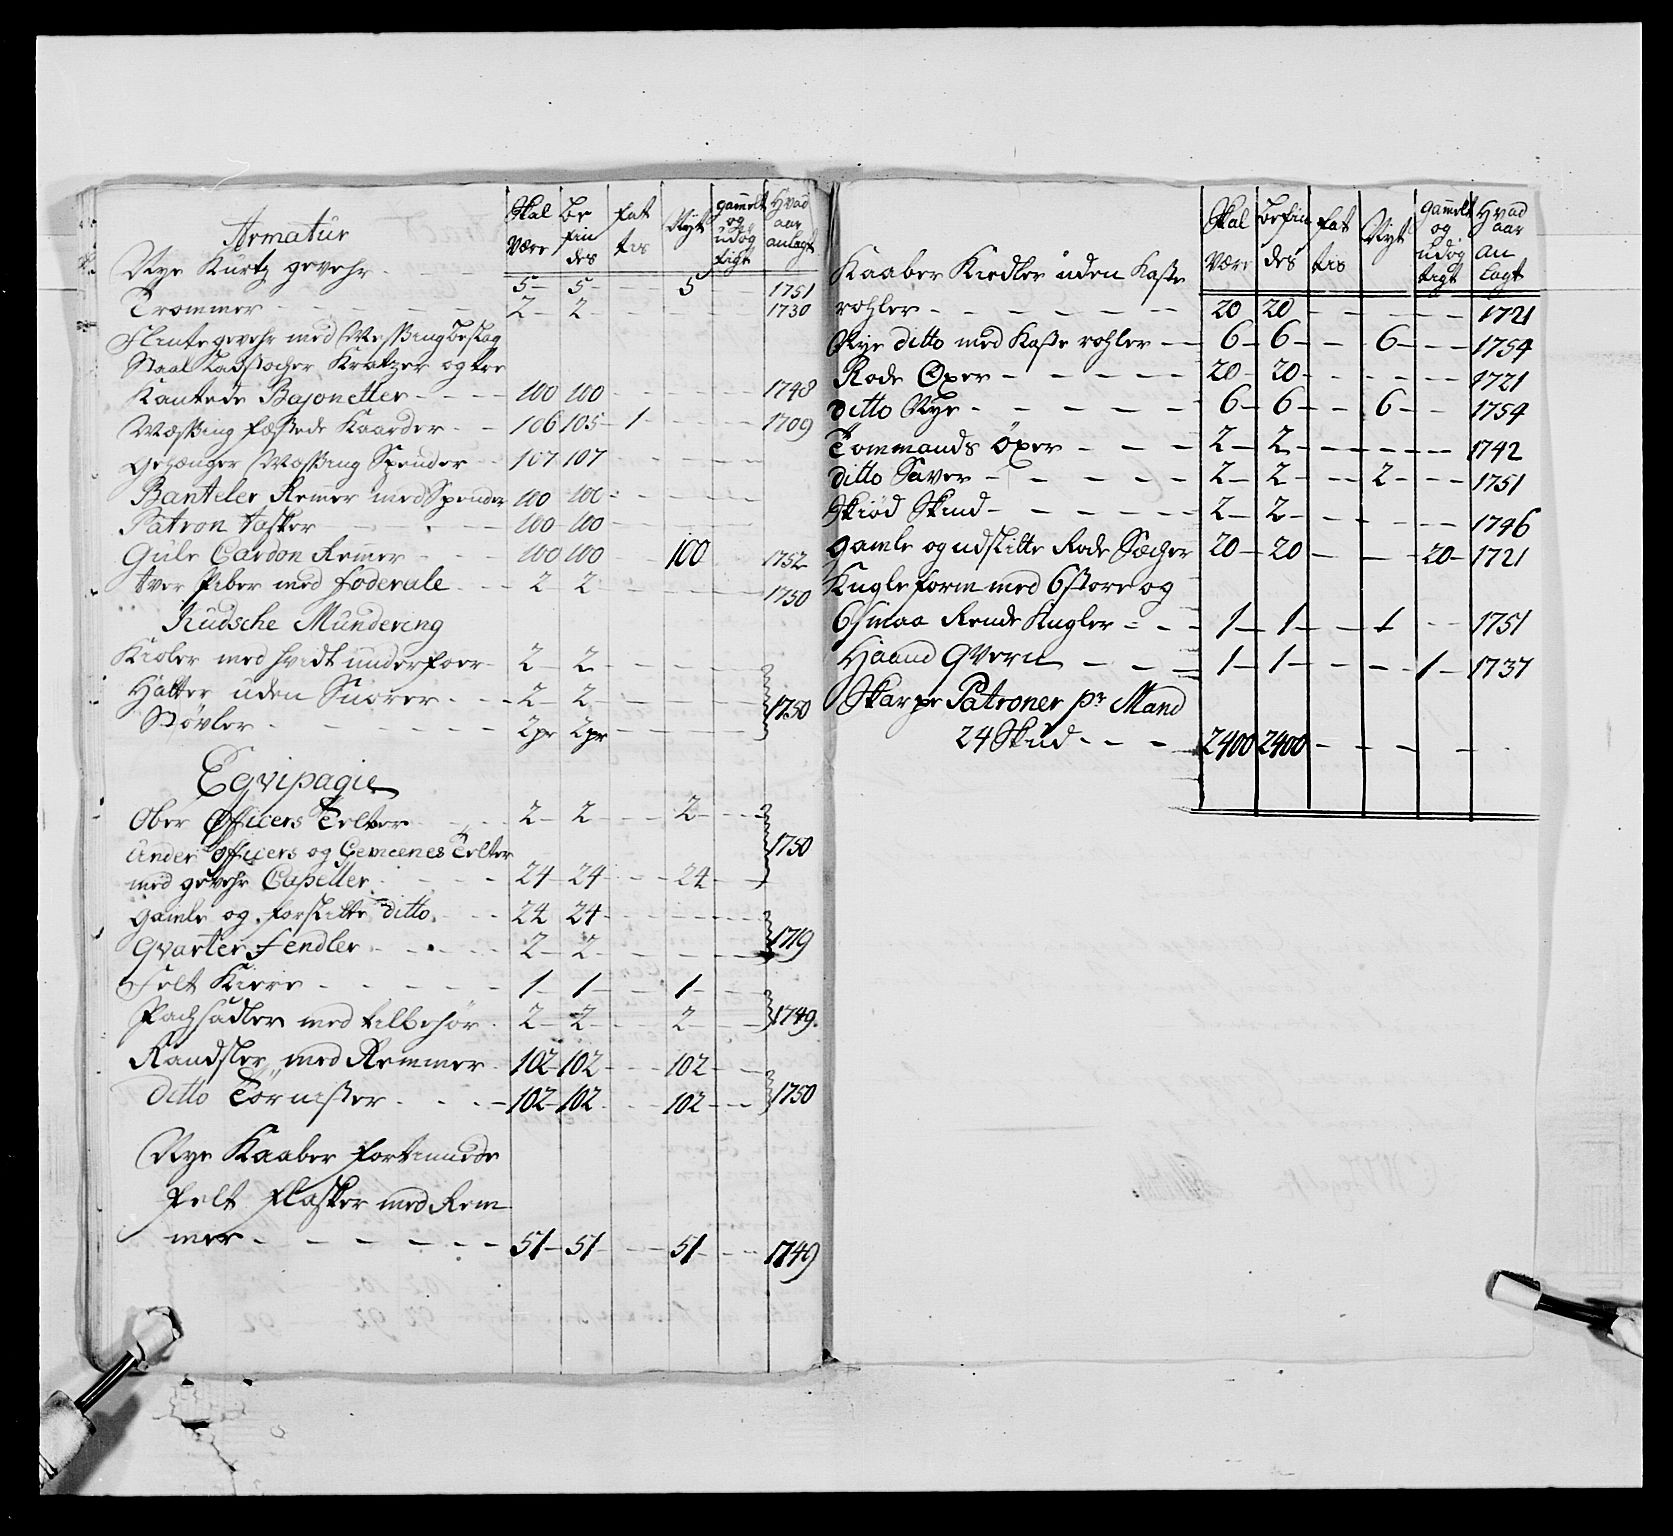 Armatur
Skal Være | Be fin des | Fat tes | Nyt | gammelt og udøg tigt | Hvad aar anlagt
Nye Kurtz gevehr - - 5 - 5 - - 5 - 1751
Trommer - - - 2 - 2 - - - 1730
Flinte gevehr med Messing beslag
Staal Ladstocher, Kratzer og tre
Kantede Bajonetter - - - 100 100 - - - 1748
Messing fæstede Kaarder - - 106 105 - 1 - - - 1709
gehænger Messing Spender - - 107 107 - - -
Banteler Remer med Spender 100 100 - - -
Patron tasker - - - 100 100 - - -
Gule Cardon Remer - - - 100 100 - 100 - 1752
tver Piber med foderale - - - 2 - 2 - - - 1750
Kudsche Mundering
Kioler med hvidt underfoer - 2 - 2 - - -
Hatter uden Snorer - - - 2 - 2 - - - 1750
Støvler - - - 2 pr 2 pr - - -
Eqvipagie
Ober Officers Telter - - - 2 - 2 - - 2 - - -
Under Officers og Gemeenes Telter 1750
med gevehr Capeller - - - 24 - 24 - - 24 - -
gamle og forslitte ditto - - - 24 24 - - -
Qvarteer fendler - - - 2 - 2 - - - 1719
Felt Kiere - - - 1 - 1 - - 1 - -
Pachsadler med tilbehør - 2 - 2 - - 2 - - 1749
Randsler med Remmer - 102 - 102 - - 102 - -
Ditto Tornister - - - 102 - 102 - - 102 - - 1750
Nye Kaaber fortinnede
Felt Flasker med Rem
mer - - - 51 - 51 - - 51 - - 1749
Skal Være | Befin des | Fat tes | Nyt | gammelt og udøg tigt | Hvad aar an lagt
Kaaber Kiedler uden Kaste
rohler - - - 20 20 - - - 1721
Nye ditto med Kaste rohler - - 6 - 6 - - 6 - - 1754
Rode Øxer - - - 20 - 20 - - - 1721
ditto Nye - - - 6 - 6 - - 6 - - 1754
Tommands Øxer - - - 2 - 2 - - - 1742
ditto Saver - - - 2 - 2 - - 2 - - 1751
Skiød Skind - - - 2 - 2 - - - 1746
gamle og udslitte Rode Sæcher 20 - 20 - - - 20 - 1721
Kugle form med 6 store og
6 smaa Rende Kugler - - - 1 - 1 - - 1 - - 1751
Haand Qvern - - - 1 - 1 - - - 1 - 1737
Skarpe Patroner pr Mand
24 Skud - - - 2400 2400 - - - -